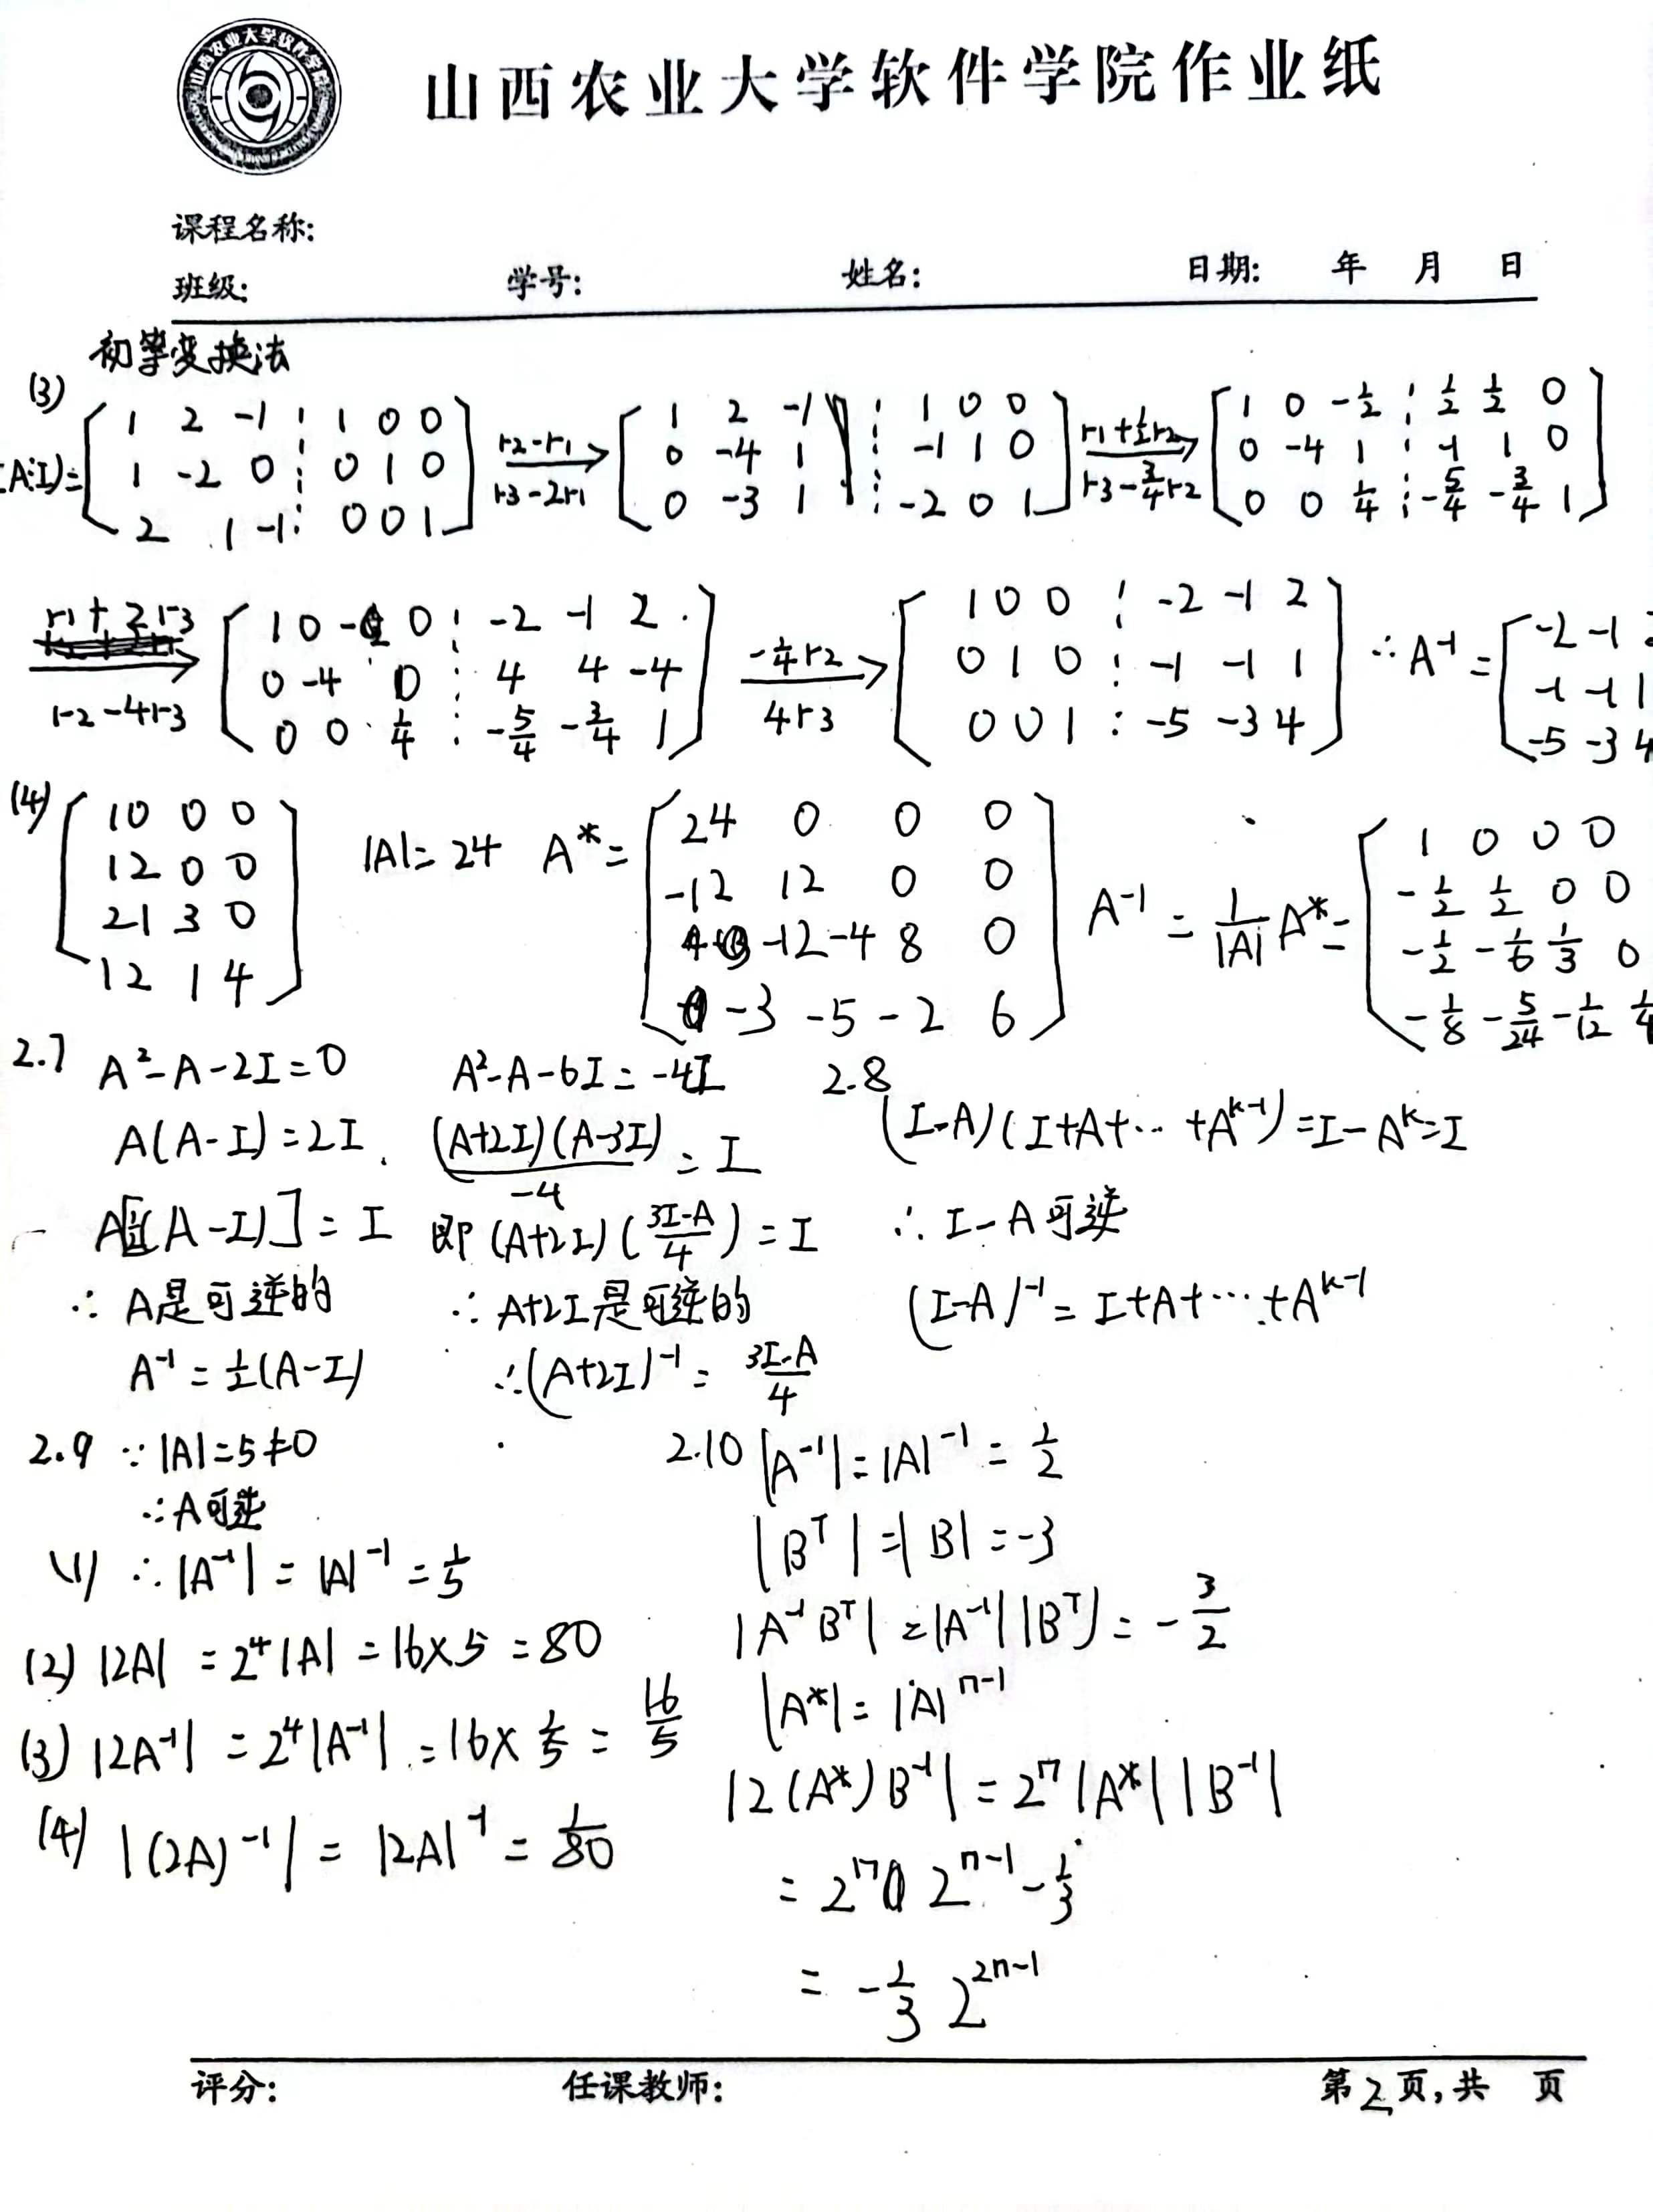 山西农业大学软件学院作业纸
课程名称:
班级: 学号: 姓名: 日期: 年 月 日
初等变换法
(3)
(A⋮I)= [1 2 -1 ⋮ 1 0 0; 1 -2 0 ⋮ 0 1 0; 2 1 -1 ⋮ 0 0 1] r2-r1 r3-2r1 → [1 2 -1 ⋮ 1 0 0; 0 -4 1 ⋮ -1 1 0; 0 -3 1 ⋮ -2 0 1] r1+½r2 r3-¾r2 → [1 0 -½ ⋮ ½ ½ 0; 0 -4 1 ⋮ -1 1 0; 0 0 ¼ ⋮ -5/4 -3/4 1]
r1+2r3 r2-4r3 → [1 0 0 ⋮ -2 -1 2; 0 -4 0 ⋮ 4 4 -4; 0 0 ¼ ⋮ -5/4 -3/4 1] -¼r2 4r3 → [1 0 0 ⋮ -2 -1 2; 0 1 0 ⋮ -1 -1 1; 0 0 1 ⋮ -5 -3 4] ∴A⁻¹= [-2 -1 2; -1 -1 1; -5 -3 4]
(4) [1 0 0 0; 1 2 0 0; 2 1 3 0; 1 2 1 4] |A|=24 A*= [24 0 0 0; -12 12 0 0; -12 -4 8 0; -3 -5 -2 6] A⁻¹ = 1/|A| A*= [1 0 0 0; -½ ½ 0 0; -½ -1/6 1/3 0; -1/8 -5/24 -1/12 1/4]
2.7 A²-A-2I=0
A(A-I)=2I
A[½(A-I)]=I
∴ A是可逆的
A⁻¹=½(A-I)
A²-A-6I=-4I
(A+2I)(A-3I)/-4 = I
即 (A+2I)(3I-A/4)=I
∴ A+2I是可逆的
∴(A+2I)⁻¹= 3I-A/4
2.8
(I-A)(I+A+⋯+Aᵏ⁻¹)=I-Aᵏ=I
∴ I-A可逆
(I-A)⁻¹=I+A+⋯+Aᵏ⁻¹
2.9 ∵|A|=5≠0
∴A可逆
(1) ∴|A⁻¹|=|A|⁻¹=1/5
(2) |2A|=2⁴|A|=16×5=80
(3) |2A⁻¹|=2⁴|A⁻¹|=16×1/5=16/5
(4) |(2A)⁻¹|=|2A|⁻¹=1/80
2.10 |A⁻¹|=|A|⁻¹=½
|Bᵀ|=|B|=-3
|A⁻¹Bᵀ|=|A⁻¹||Bᵀ|=-3/2
|A*|=|A|ⁿ⁻¹
|2(A*)B⁻¹|=2ⁿ|A*||B⁻¹|
=2ⁿ 2ⁿ⁻¹ -1/3
=-1/3 2²ⁿ⁻¹
评分: 任课教师: 第2页,共 页